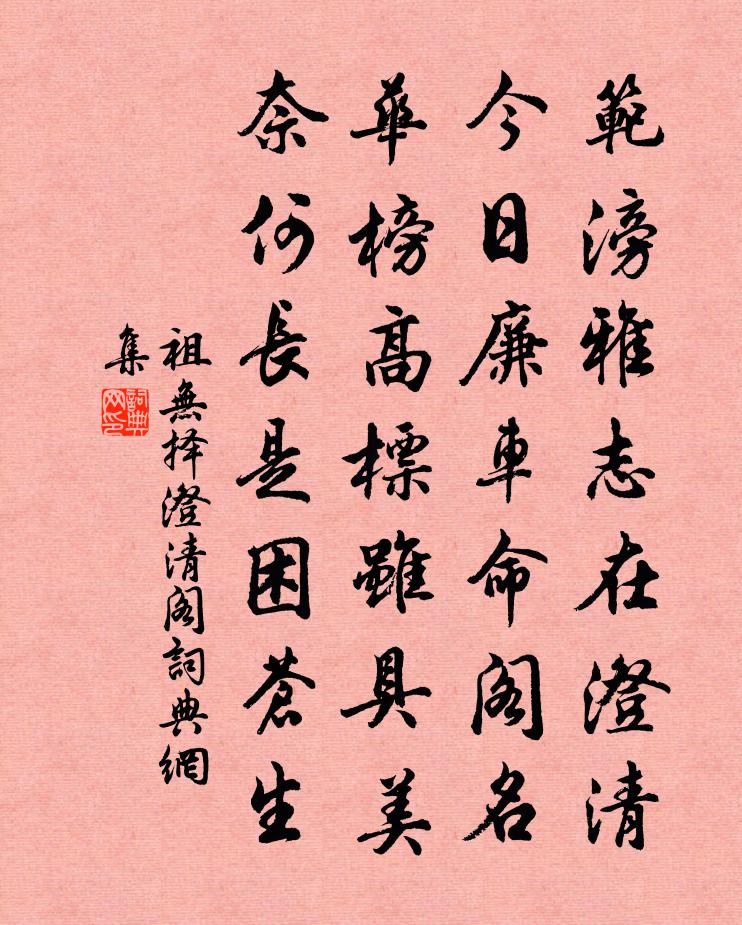 範滂雅志在澄清
今日廉車命阁名
華榜高標雖具美
奈何長是困蒼生
祖無择澄清阁詞典網
集
詞典网印